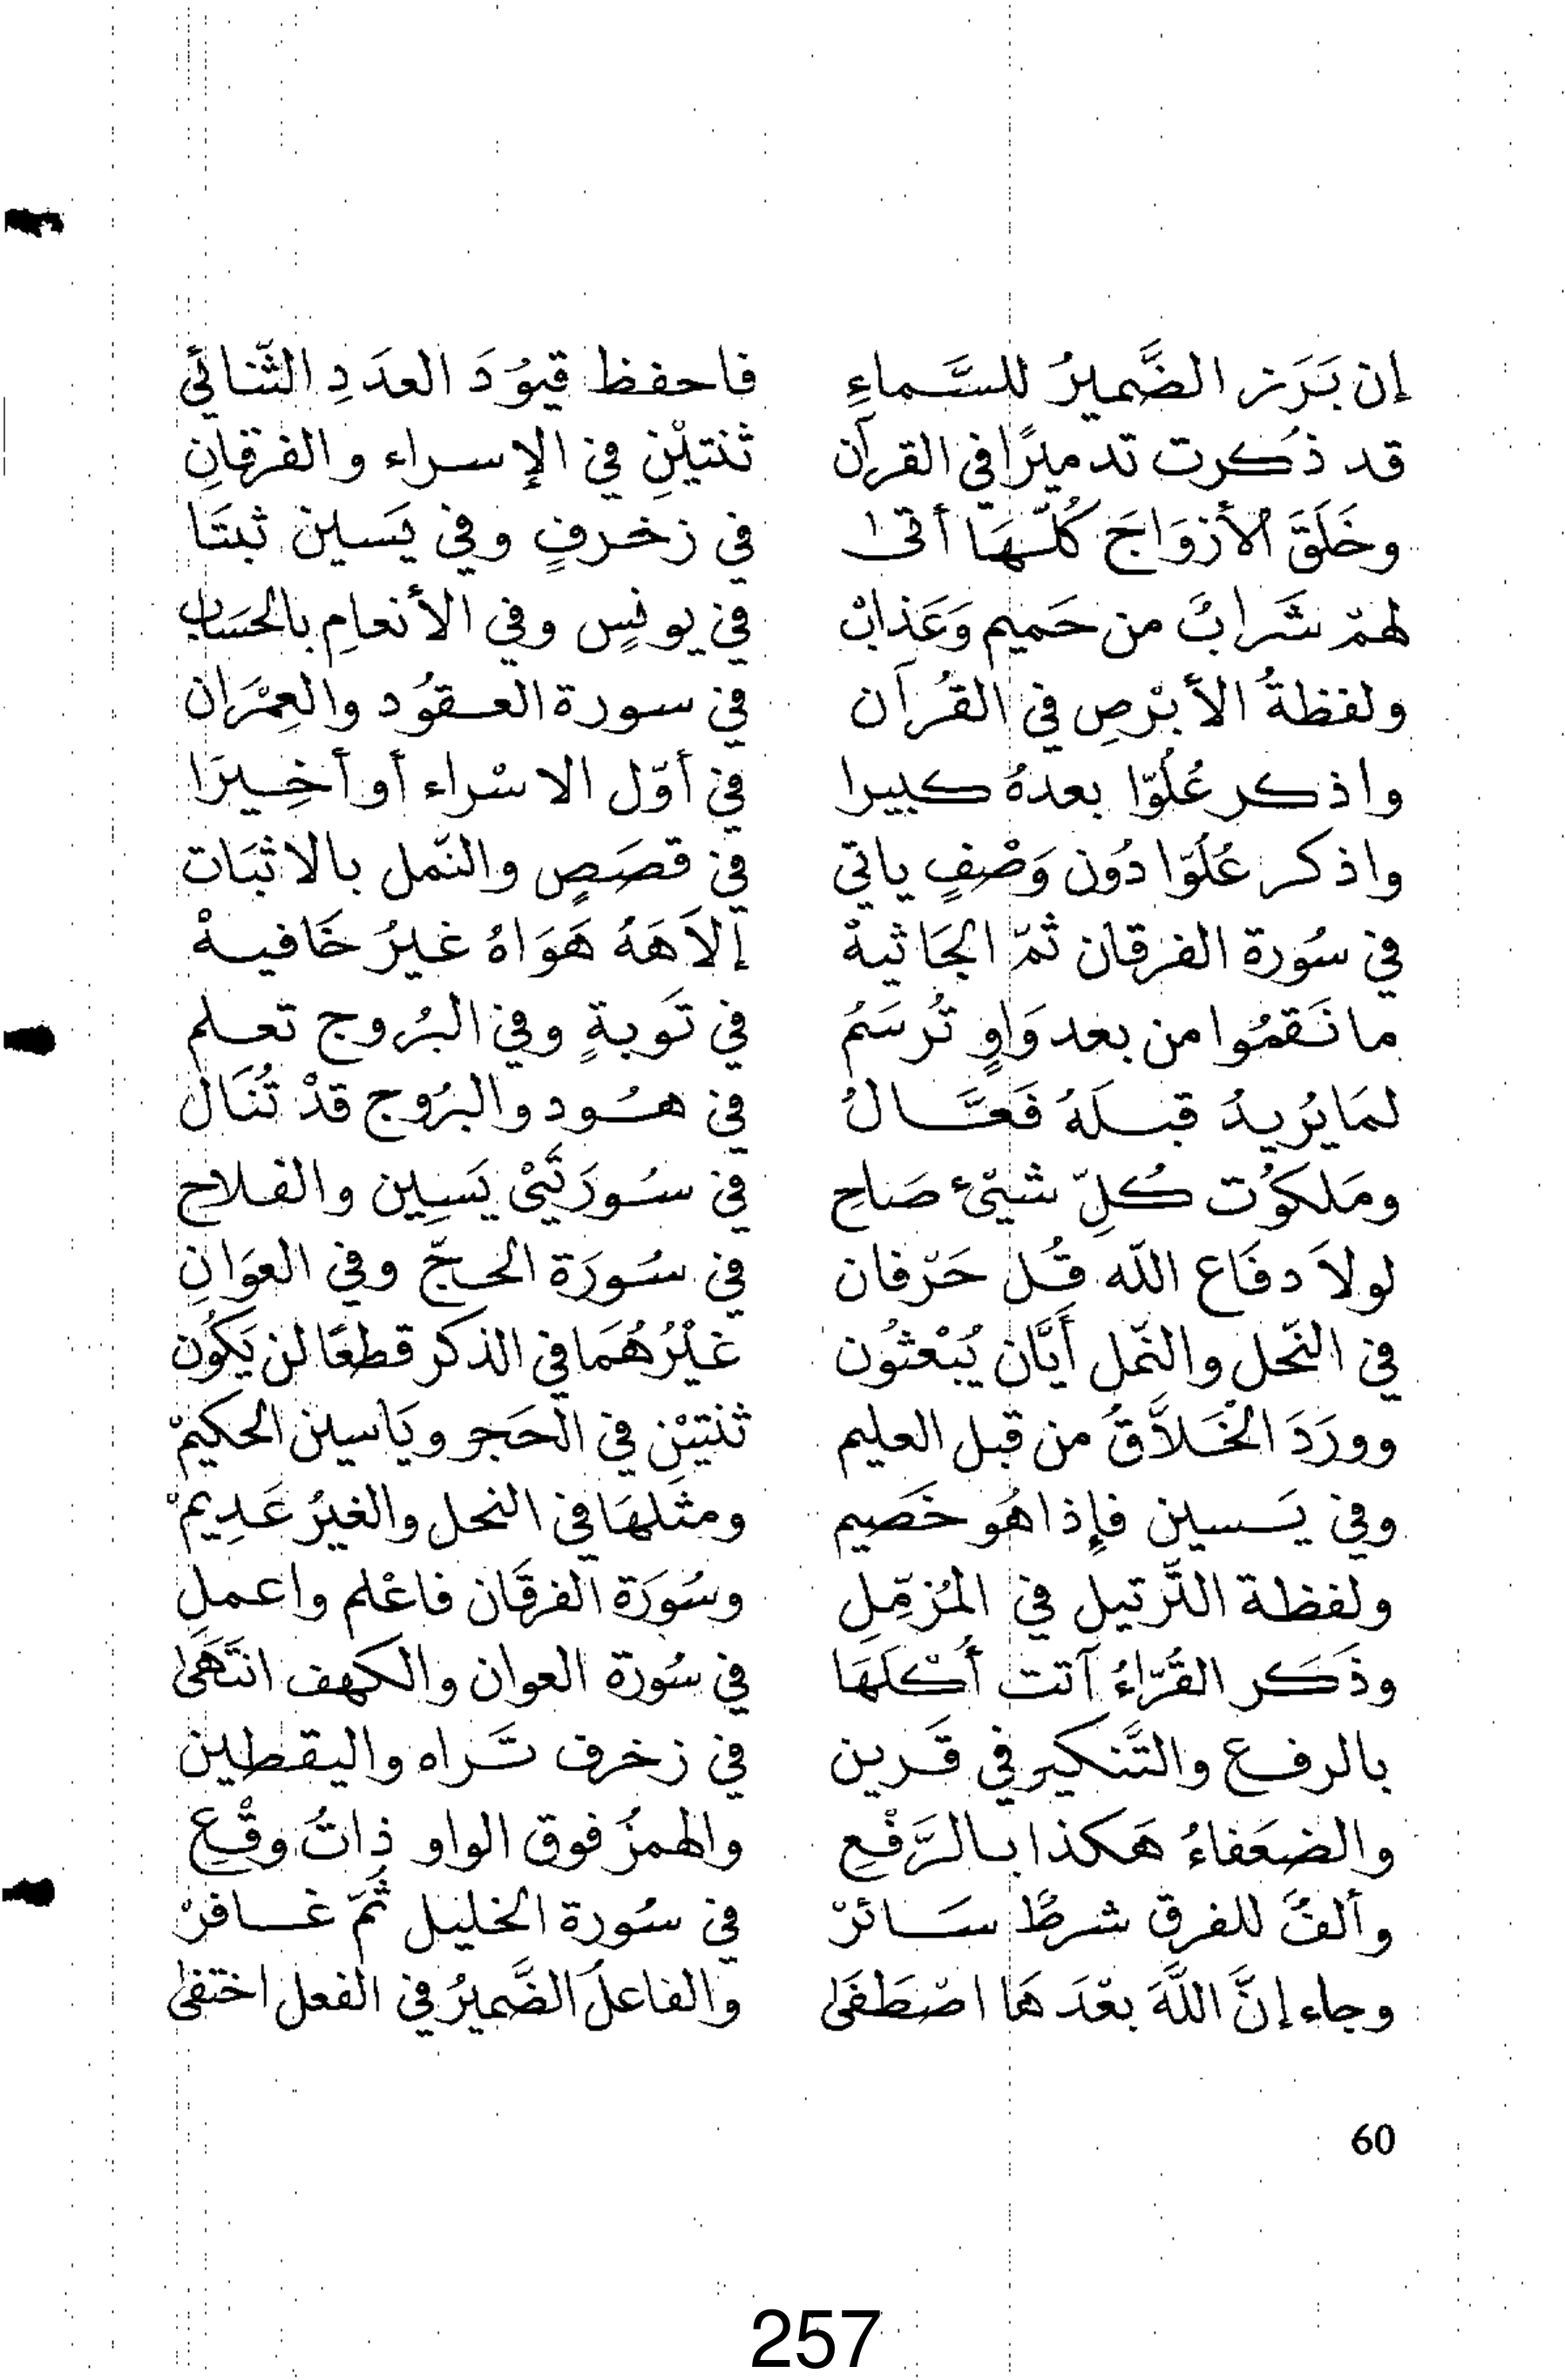 إن بَرَز الضَّميرُ للسَّماءِ فاحفظ قيوُدَ العدَدِ الثّنائي
قد ذُكرت تدميرًا في القرآن ثنتيْنِ في الإسراء والفرقانِ
وخَلَقَ الأزوَاجَ كُلّهَا أتى في زخرفٍ وفي يَسين ثبتَا
لهمّ شَرابٌ من حَميم وَعَذابْ في يونسٍ وفي الأنعامِ بالحسَاب
ولفظةُ الأبْرصِ في القُرآن في سورة العقوُد والعِمْرَان
واذكر عُلُوّا بعدهُ كبيرا في أوّل الاسْراء أو أخِيرَا
واذكر عُلُوّا دُون وَصْفٍ ياتي في قصَصٍ والنّمل بالاثبَات
في سُورة الفرقان ثمّ الجَاثيهْ إلاَهَهُ هَوَاهُ غيرُ خَافيهْ
ما نَقمُوا من بعد وَاوٍ تُرسَمُ في تَوبةٍ وفي البُروج تعلم
لمَا يُريدُ قبلَهُ فَعَّالُ في هُود والبرُوج قدْ تُنَال
ومَلكوُت كُلِّ شيْئ صَاح في سُورَتَيْ يَسِين والفلاح
لولاَ دفَاع الله قُل حَرّفان في سُورَة الحجّ وفي العوَانِ
في النّحل والنّمل أَيَّان يُبْعثُون غيْرُهُمَا في الذكر قطعًا لن يَكُون
وورَدَ الْخَلاَّقُ من قبل العليم ثنتيْنِ في الحَجر ويَاسين الحكيمْ
وفي يَسين فإذا هُو خَصيم ومثلهَا في النحل والغيرُ عَدِيمْ
ولفظة التّرتيل في المُزمّلِ وسُورَة الفرقَان فاعْلم واعملِ
وذَكَر القُرّاءُ آتت أُكْلَهَا في سُورَة العوان والكهف انتَهَى
بالرفع والتَّنكير في قَرين في زخرف تَراه واليقطين
والضعَفاءُ هَكذا بالرَّفْع والهمزُ فوق الواو ذاتُ وقْعِ
وألفٌ للفرق شرطٌ سَائرْ في سُورة الخليل ثمّ غافرْ
وجاء إنَّ اللَّهَ بعْدَهَا اصْطَفَى والفاعلُ الضَّميرُ في الفعل اختفى
60
257